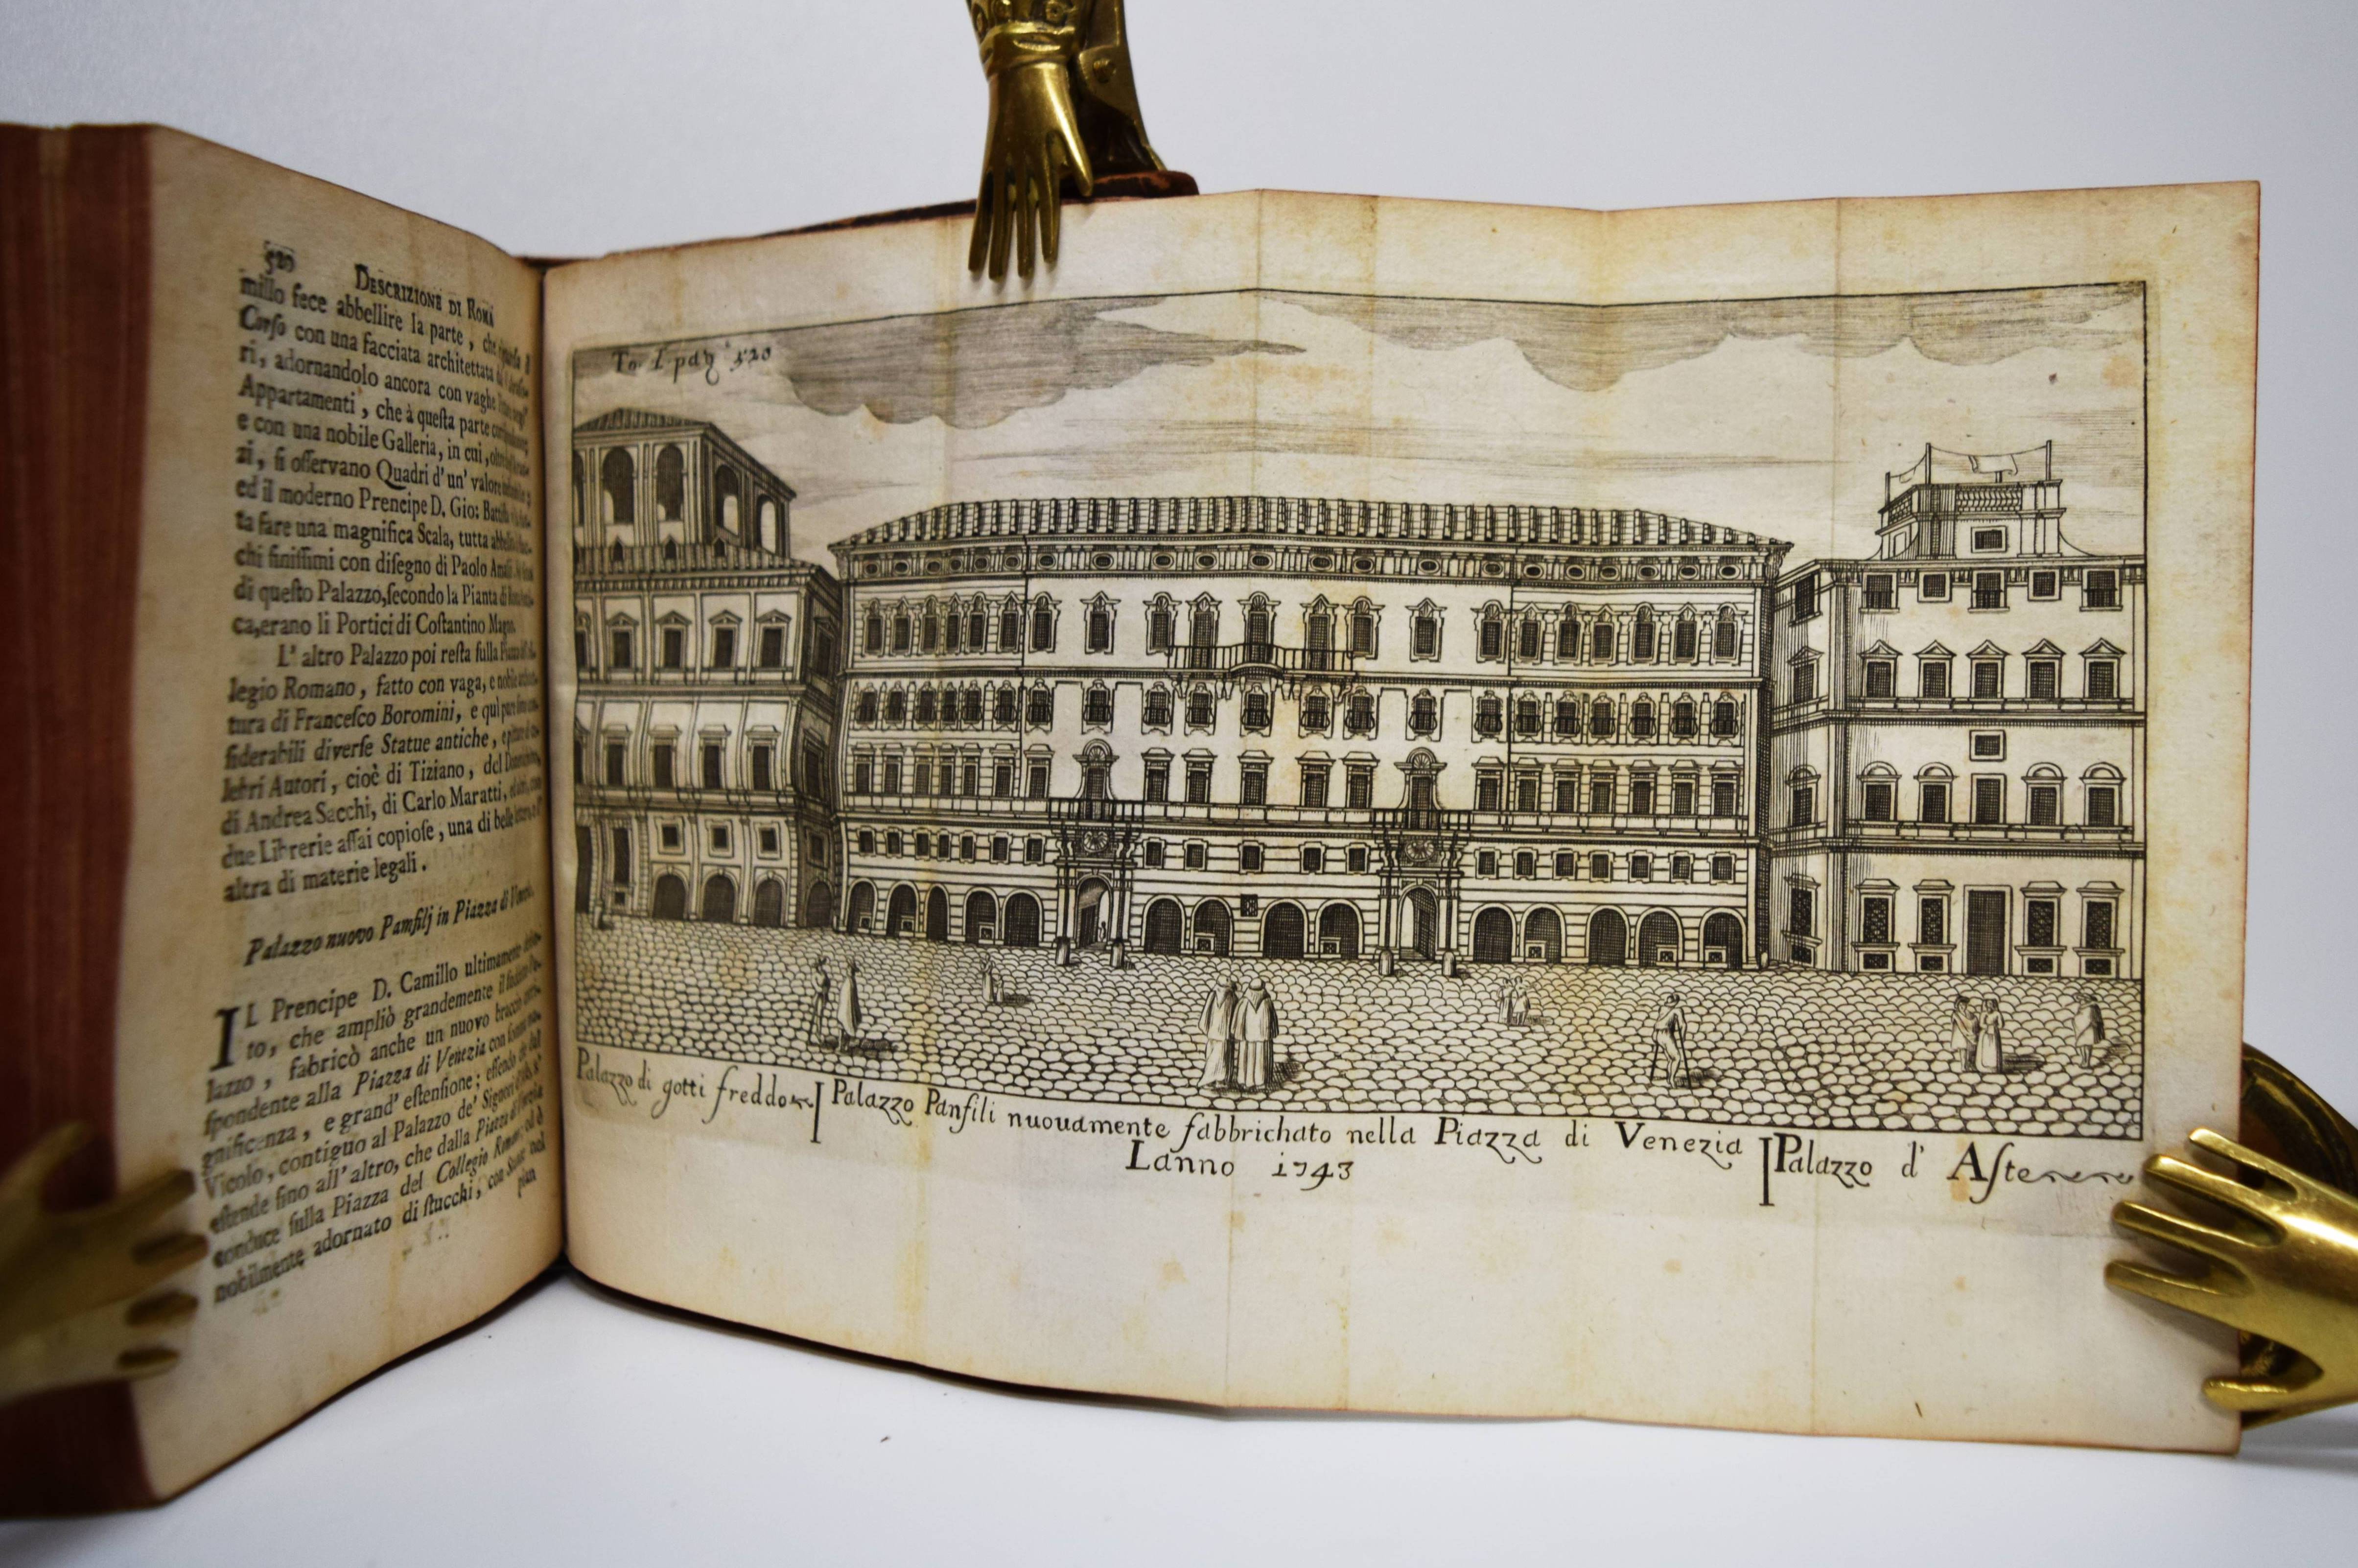 520 DESCRIZIONE DI ROMA
millo fece abbellire la parte, che riguarda il
Corſo con una facciata architettata
ri, adornandolo ancora con vaghe
Appartamenti, che à queſta parte
e con una nobile Galleria, in cui,
zi, ſi oſſervano Quadri d'un' valore
ed il moderno Prencipe D. Gio: Battiſta
ta fare una magnifica Scala, tutta
chi finiſſimi con diſegno di Paolo
di queſto Palazzo, ſecondo la Pianta di
ca, erano li Portici di Coſtantino Magno.
L' altro Palazzo poi reſta ſulla
legio Romano, fatto con vaga, e nobile
tura di Franceſco Boromini, e qui
ſiderabili diverſe Statue antiche,
lebri Autori, cioè di Tiziano, del
di Andrea Sacchi, di Carlo Maratti,
due Librerie aſſai copioſe, una di belle
altra di materie legali.
Palazzo nuovo Panfilj in Piazza di
IL Prencipe D. Camillo ultimamente
to, che ampliò grandemente il
lazzo, fabricò anche un nuovo braccio
ſpondente alla Piazza di Venezia con
gnificenza, e grand' eſtenſione; eſſendo che dal
Vicolo, contiguo al Palazzo de' Signori
eſtende fino all' altro, che dalla Piazza di Venezia
conduce ſulla Piazza del Collegio Romano, ed è
nobilmente adornato di ſtucchi, con Statue nel
pian
To. I pag. 520
Palazzo di gotti freddo
Palazzo Panfili nuouamente fabbrichato nella Piazza di Venezia
Lanno 1743
Palazzo d' Aſte